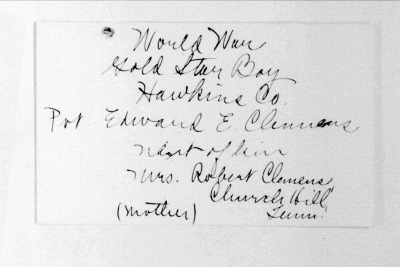 World War
Gold Star Boy
Hawkins Co.
Pvt Edward E. Clemens
Next of kin
Mrs. Robert Clemens
Church Hill
(Mother) Tenn.